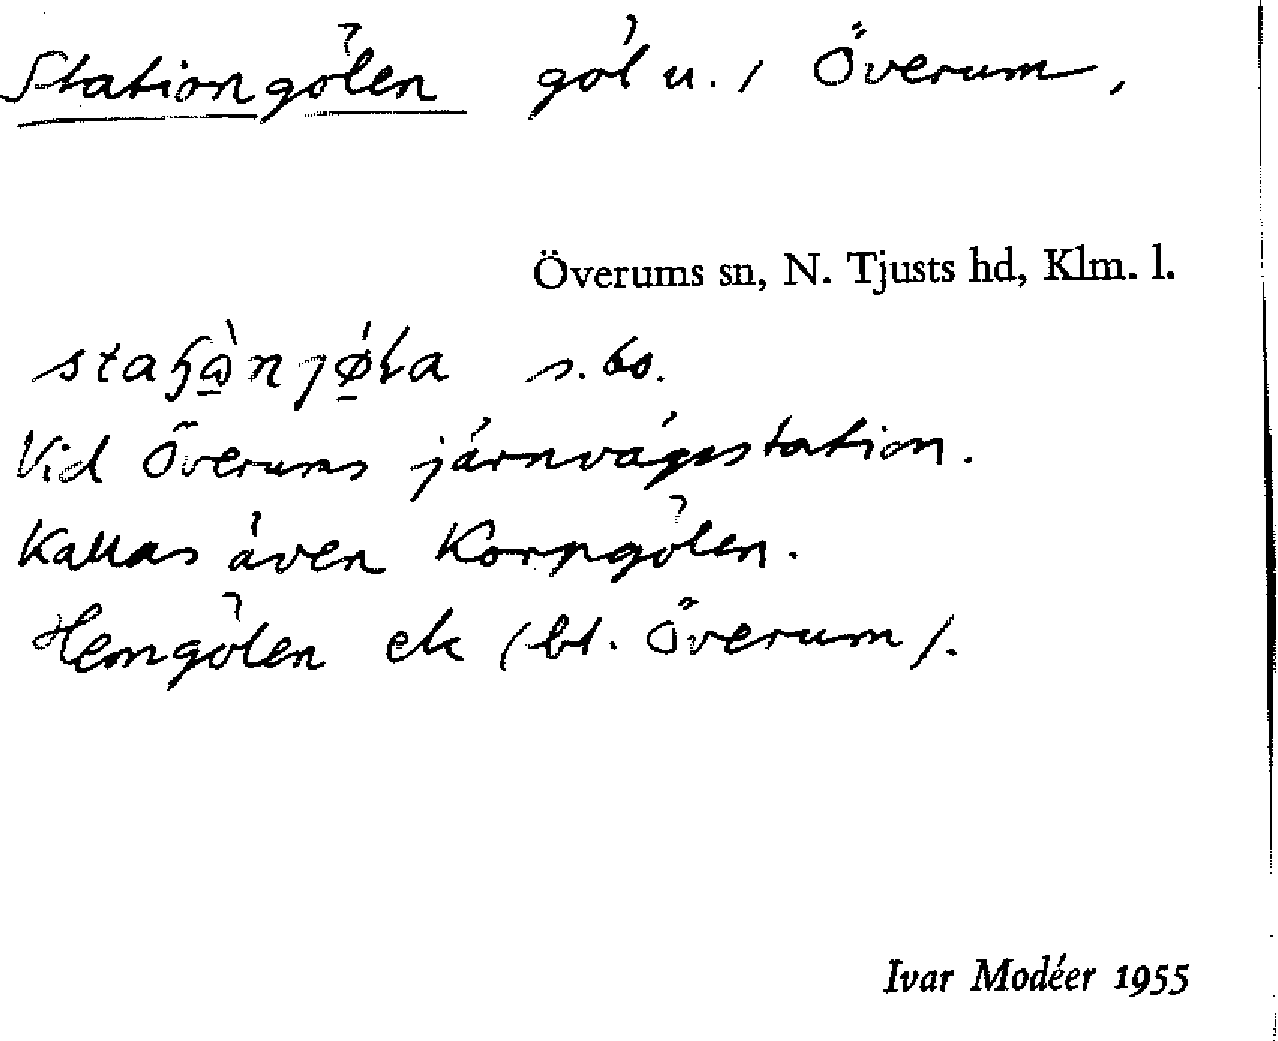 Stationgölen göl u. / Överum,
Överums sn, N. Tjusts hd, Klm. l.
s. bo.
Vid Överums järnvägsstation.
Kallas även Korpgölen.
Hemgölen ek (bl. Överum).
Ivar Modéer 1955